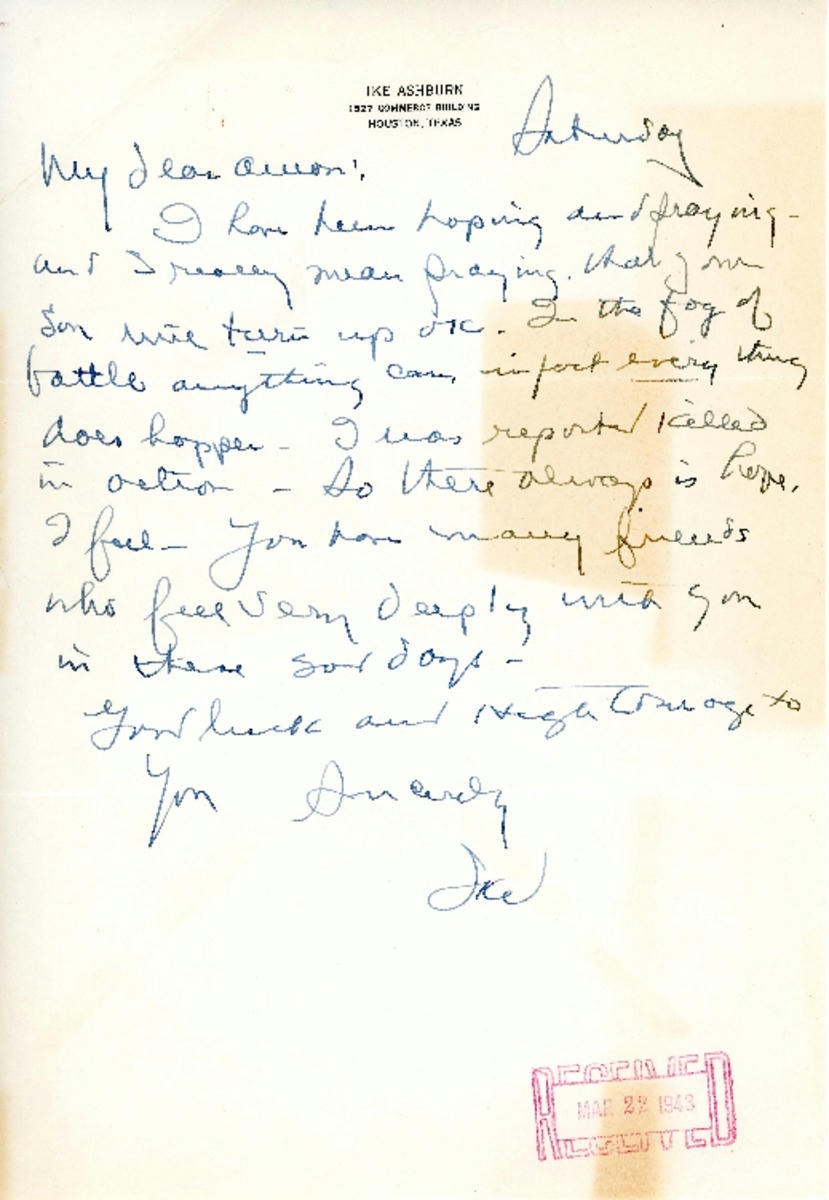 IKE ASHBURN
1527 COMMERCE BUILDING
HOUSTON, TEXAS
Saturday
My dear Amon:
I have been hoping and praying -
and I really mean praying, that your
son will turn up OK. In the fog of
battle anything can, in fact every thing
does happen - I was reported killed
in action - So there always is hope,
I feel - You have many friends
who feel very deeply with you
in these sad days -
Good luck and High Courage to
You Sincerely
Ike
RECEIVED
MAR 22 1943
RECEIVED